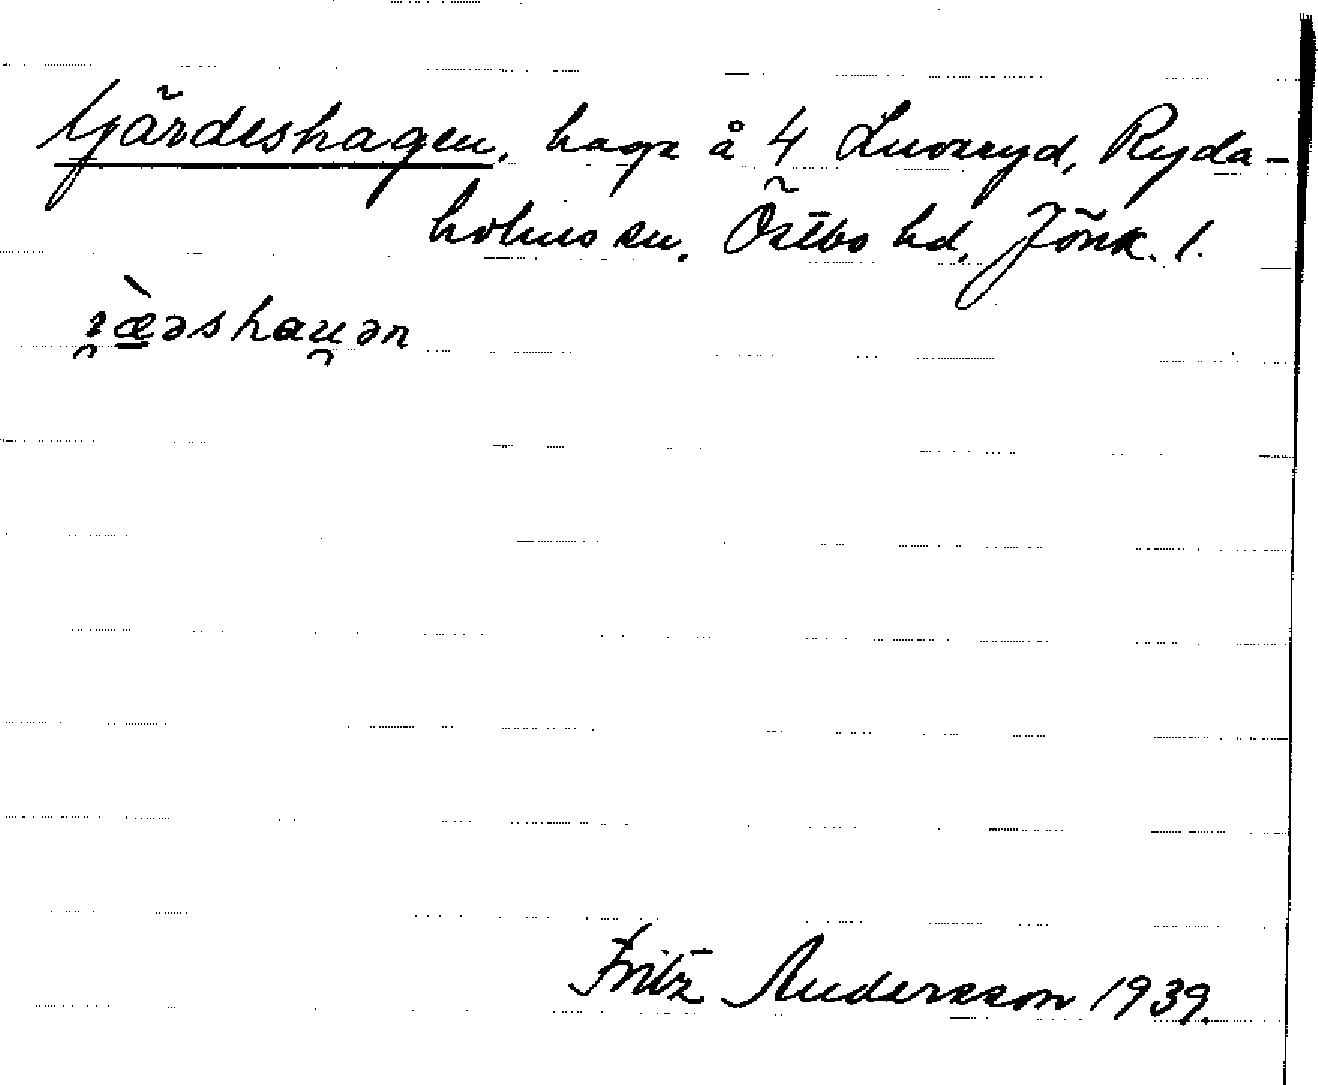 Gärdeshagen, hage å 4 Snoreryd, Ryda-
holms sn, Östbo hd, Jönk. l.
Fritz Andersson 1939.